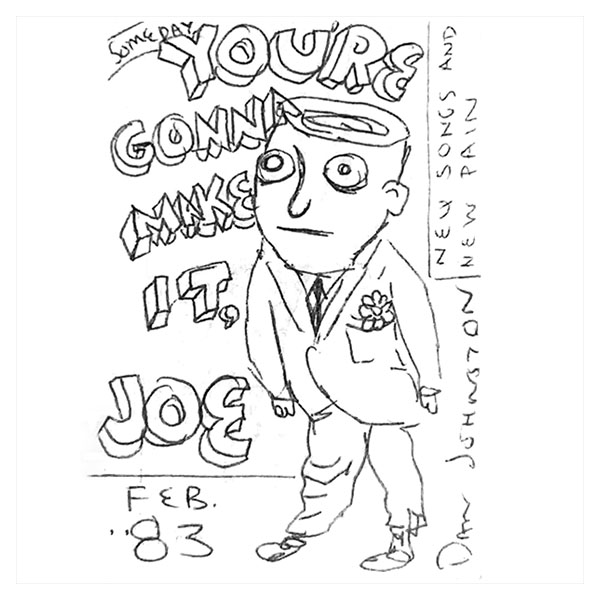 SOMEDAY
YOU'RE
GONNA
MAKE
IT,
JOE
FEB.
'83
NEW SONGS AND
NEW PAIN
DAN JOHNSTON